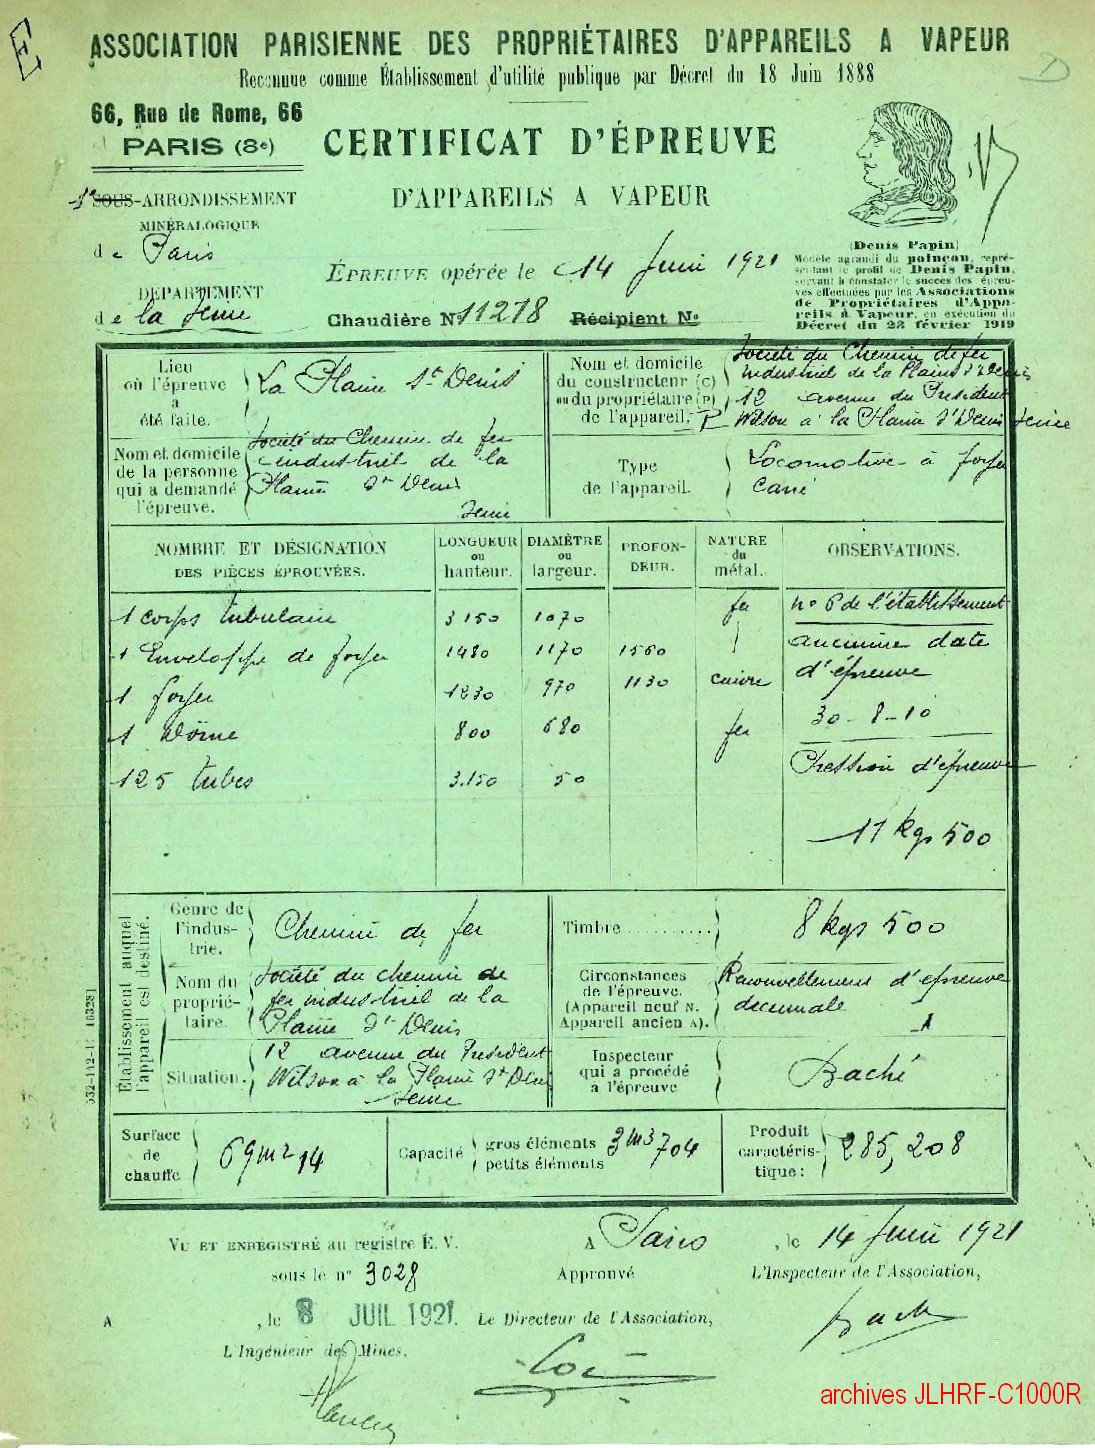 E
ASSOCIATION PARISIENNE DES PROPRIÉTAIRES D'APPAREILS A VAPEUR
D
Reconnue comme Établissement d'utilité publique par Décret du 18 Juin 1888
66, Rue de Rome, 66
PARIS (8e)
CERTIFICAT D'ÉPREUVE
D'APPAREILS A VAPEUR
1er SOUS-ARRONDISSEMENT
MINÉRALOGIQUE
de Paris
DÉPARTEMENT
de la Seine
ÉPREUVE opérée le 14 Juin 1921
Chaudière No 11278 Récipient No
(Denis Papin)
Modèle agrandi du poinçon, repré-
sentant le profil de Denis Papin,
servant à constater le succès des épreu-
ves effectuées par les Associations
de Propriétaires d'Appa-
reils à Vapeur, en exécution du
Décret du 23 février 1919
Lieu
où l'épreuve
a
été faite.
La Plaine St Denis
Nom et domicile
du constructeur (C)
ou du propriétaire (P)
de l'appareil. P
Société du Chemin de fer
industriel de la Plaine St Denis
12 avenue du Président
Wilson à la Plaine St Denis Seine
Nom et domicile
de la personne
qui a demandé
l'épreuve.
Société du Chemin de fer
industriel de la
Plaine St Denis
Seine
Type
de l'appareil.
Locomotive à foyer
carré
NOMBRE ET DÉSIGNATION
DES PIÈCES ÉPROUVÉES.
LONGUEUR
ou
hauteur.
DIAMÈTRE
ou
largeur.
PROFON-
DEUR.
NATURE
du
métal.
OBSERVATIONS.
1 corps tubulaire 3150 1070 fer
1 Enveloppe de foyer 1480 1170 1560
1 foyer 1230 970 1130 cuivre
1 Dôme 800 680 fer
125 tubes 3.150 50
no 6 de l'établissement
ancienne date
d'épreuve
30-8-10
Pression d'épreuve
11 kgs 500
Établissement auquel
l'appareil est destiné.
Genre de
l'indus-
trie.
Chemin de fer
Nom du
proprié-
taire.
Société du chemin de
fer industriel de la
Plaine St Denis
Situation.
12 avenue du Président
Wilson à la Plaine St Denis
Seine
Timbre ..........
8 kgs 500
Circonstances
de l'épreuve.
(Appareil neuf N.
Appareil ancien A).
Renouvellement d'épreuve
décennale
A
Inspecteur
qui a procédé
à l'épreuve
Baché
Surface
de
chauffe
69 m2 14
Capacité
gros éléments
petits éléments
3 m3 704
Produit
caractéris-
tique :
285,208
VU ET ENREGISTRÉ au registre É. V.
sous le no 3028
A , le 8 JUIL 1921.
L'Ingénieur des Mines,
A Paris , le 14 Juin 1921
Approuvé
L'Inspecteur de l'Association,
Le Directeur de l'Association,
Baché
archives JLHRF-C1000R